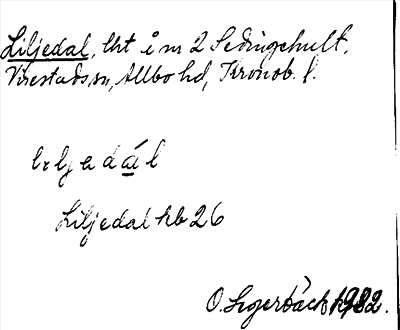 Liljedal, lht å nr 2 Sedingehult,
Virestads sn, Allbo hd, Kronob. l.
Liljedal hb 26
O. Segerbäck 1982.